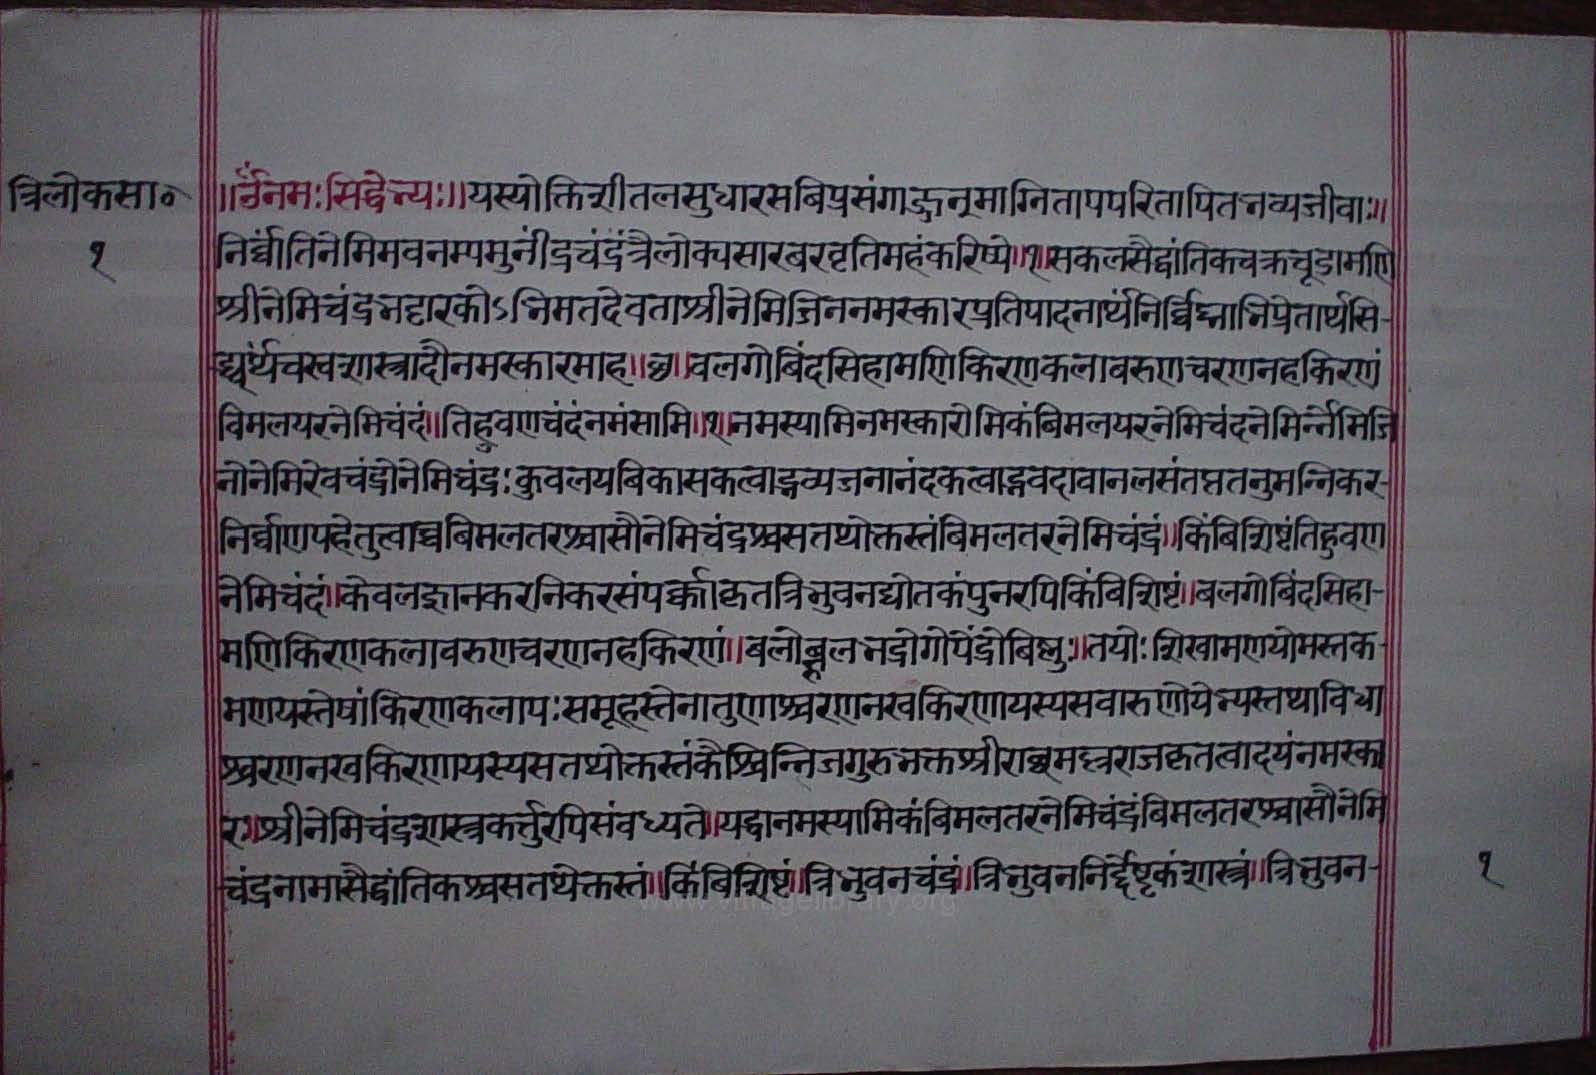 त्रिलोकसा॰
१
॥ॐनमःसिद्धेभ्यः॥यस्योक्तिशीतलसुधारसबिप्रसंगाद्भनूमाग्नितापपरितापितभव्यजीवाः॥
निर्व्वांतिनेमिमवनम्यमुनींद्रचंद्रंत्रैलोक्यसारबरवृतिमहंकरिष्ये॥१॥सकलसैद्धांतिकचक्रचूडामणि
श्रीनेमिचंद्रभट्टारकोऽभिमतदेवताश्रीनेमिजिननमस्कारप्रतिपादनार्थंनिर्विघ्नाभिप्रेतार्थसि-
द्ध्यर्थंचखशास्त्रादौनमस्कारमाह॥छ॥वलगोबिंदसिहामणिकिरणकलाबरुणचरणनहकिरणं
विमलयरनेमिचंदं॥तिहुवणचंदंनमंसामि॥१॥नमस्यामिनमस्कारोमिकंबिमलयरनेमिचंदनेमिर्न्नेमिजि
नोनेमिरेवचंद्रोनेमिचंद्रः कुवलयबिकासकत्वाद्भव्यजनानंदकत्वाद्भवदावानलसंतप्ततनुमन्निकर-
निर्व्वाणपहेतुत्वाच्चबिमलतरश्चासौनेमिचंद्रश्चसतथोक्तस्तंबिमलतरनेमिचंद्रं॥किंबिशिष्टंतिहुवण
नेमिचंदं॥केवलज्ञानकरनिकरसंपर्क्काकृतत्रिभुवनद्योतकंपुनरपिकिंबिशिष्टं॥बलगोबिंदसिहा-
मणिकिरणकलावरुणचरणनहकिरणं॥बलोब्बलभद्रोगोपेंद्रोबिष्णुः॥तयोः शिखामणयोमस्तक-
मणयस्तेषांकिरणकलापःसमूहस्तेनातुणाश्चरणनखकिरणायस्यसवारुणोयेभ्यस्तथाविधा
श्चरणनखकिरणायस्यसतथोक्तस्तंकैश्चिन्निजगुरुभक्तश्रीराच्चमल्लराजकृतत्वादयंनमस्का
रः॥श्रीनेमिचंद्रशास्त्रकर्त्तुरपिसंवध्यते॥यद्वानमस्यामिकंबिमलतरनेमिचंद्रंबिमलतरश्चासौनेमि
चंद्रनामासैद्धांतिकश्चसतथेक्तस्तं॥किंबिशिष्टं॥त्रिभुवनचंद्रं॥त्रिभुवननिर्द्देष्टृकंशास्त्रं॥त्रिभुवन-
१